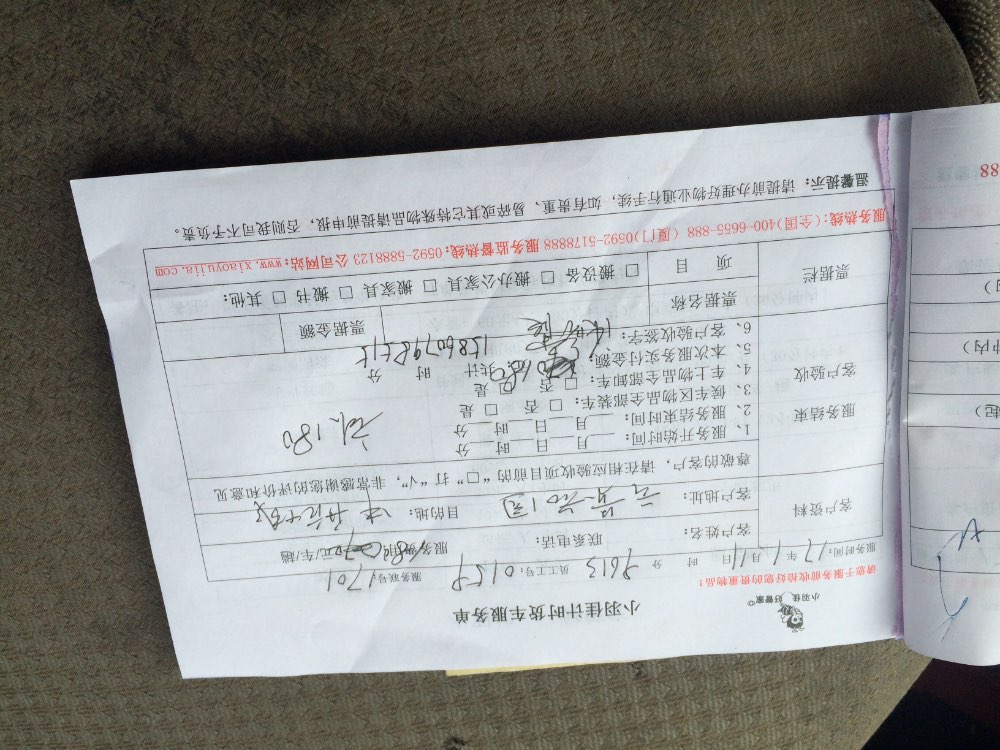 小羽佳 好管家
小羽佳计时货车服务单
请您于服务前收拾好您的贵重物品!
服务时间: 17年 1月 11日 时 分 9613 员工号: 0159 服务联号: 1701
客户资料
客户姓名: 联系电话: 服务费用 元/趟
客户地址: 目的地:
尊敬的客户,请在相应验收项目前的“□”打“√”,非常感谢您的评价和意见
服务结束
客户验收
1、服务开始时间: 月 日 时 分
2、服务结束时间: 月 日 时 分
3、候车区物品全部装车: □ 否 □ 是
4、车上物品全部卸车: □ 否 □ 是
5、本次服务实付金额: 共计: 时 分
6、客户验收签字:
180
票据栏
票据名称 票据金额
项 目 □ 搬设备 □ 搬办公家具 □ 搬家具 □ 搬书 □ 其他:
服务热线:(全国)400-6655-888 (厦门)0592-5178888 服务监督热线:0592-5888123 公司网站:www.xiaoyujia.com
温馨提示: 请提前办理好物业通行手续,如有贵重、易碎或其它特殊物品请提前申报,否则我司不予负责。
88